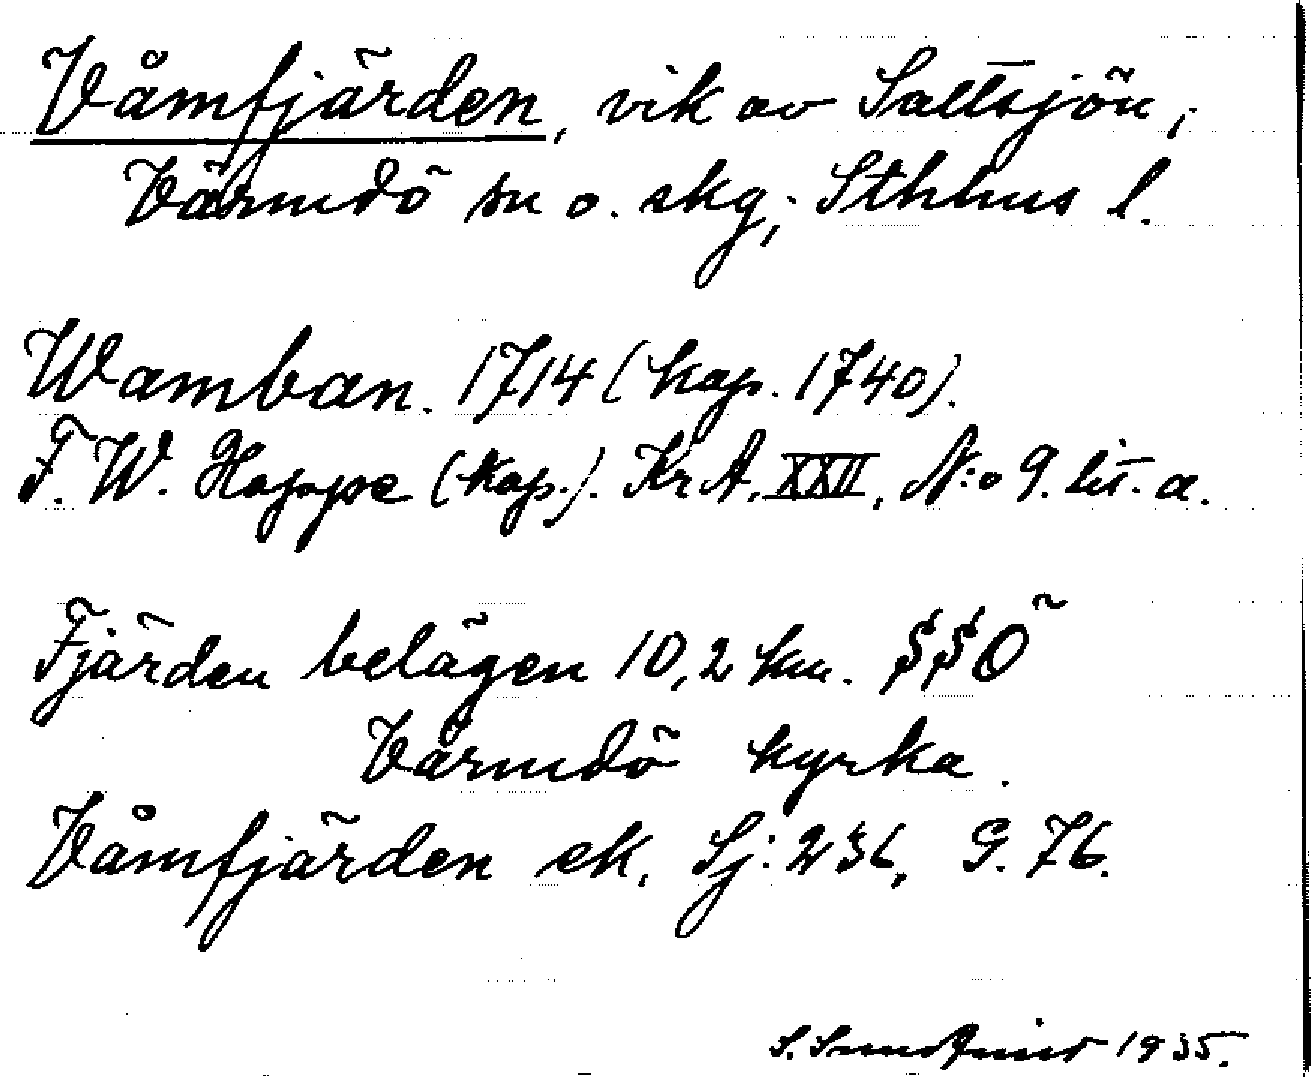 Våmfjärden, vik av Saltsjön,
Värmdö sn o. skg; Sthlms l.
Wamban. 1714 (kop. 1740).
F. W. Hoppe (kop.). KrA. XXII, N:o 9. lit. a.
Fjärden belägen 10,2 km. SSO
Värmdö kyrka.
Våmfjärden ek. Sj: 236, G. 76.
S. Sundquist 1935.